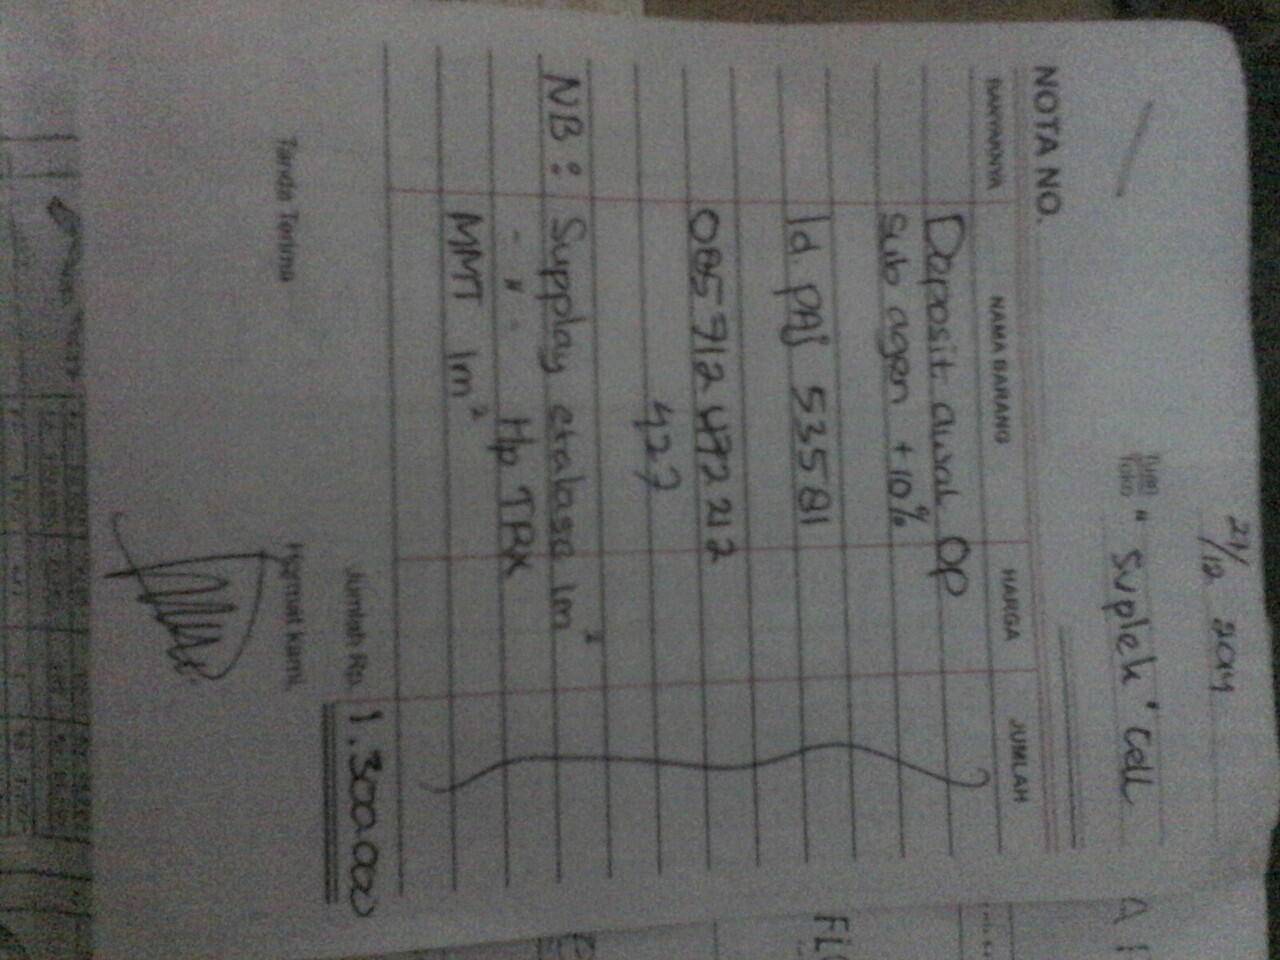 21/12 2014
Tuan
Toko
" Suplek' Cell
NOTA NO.
BANYAKNYA NAMA BARANG HARGA JUMLAH
Deposit awal OP
Sub agen +10%
Id PAj 535581
085712472212
427
NB : Supplay etalase 1m²
- " - Hp TRX
MMT 1m²
Jumlah Rp. 1.300.000
Tanda Terima Hormat kami,